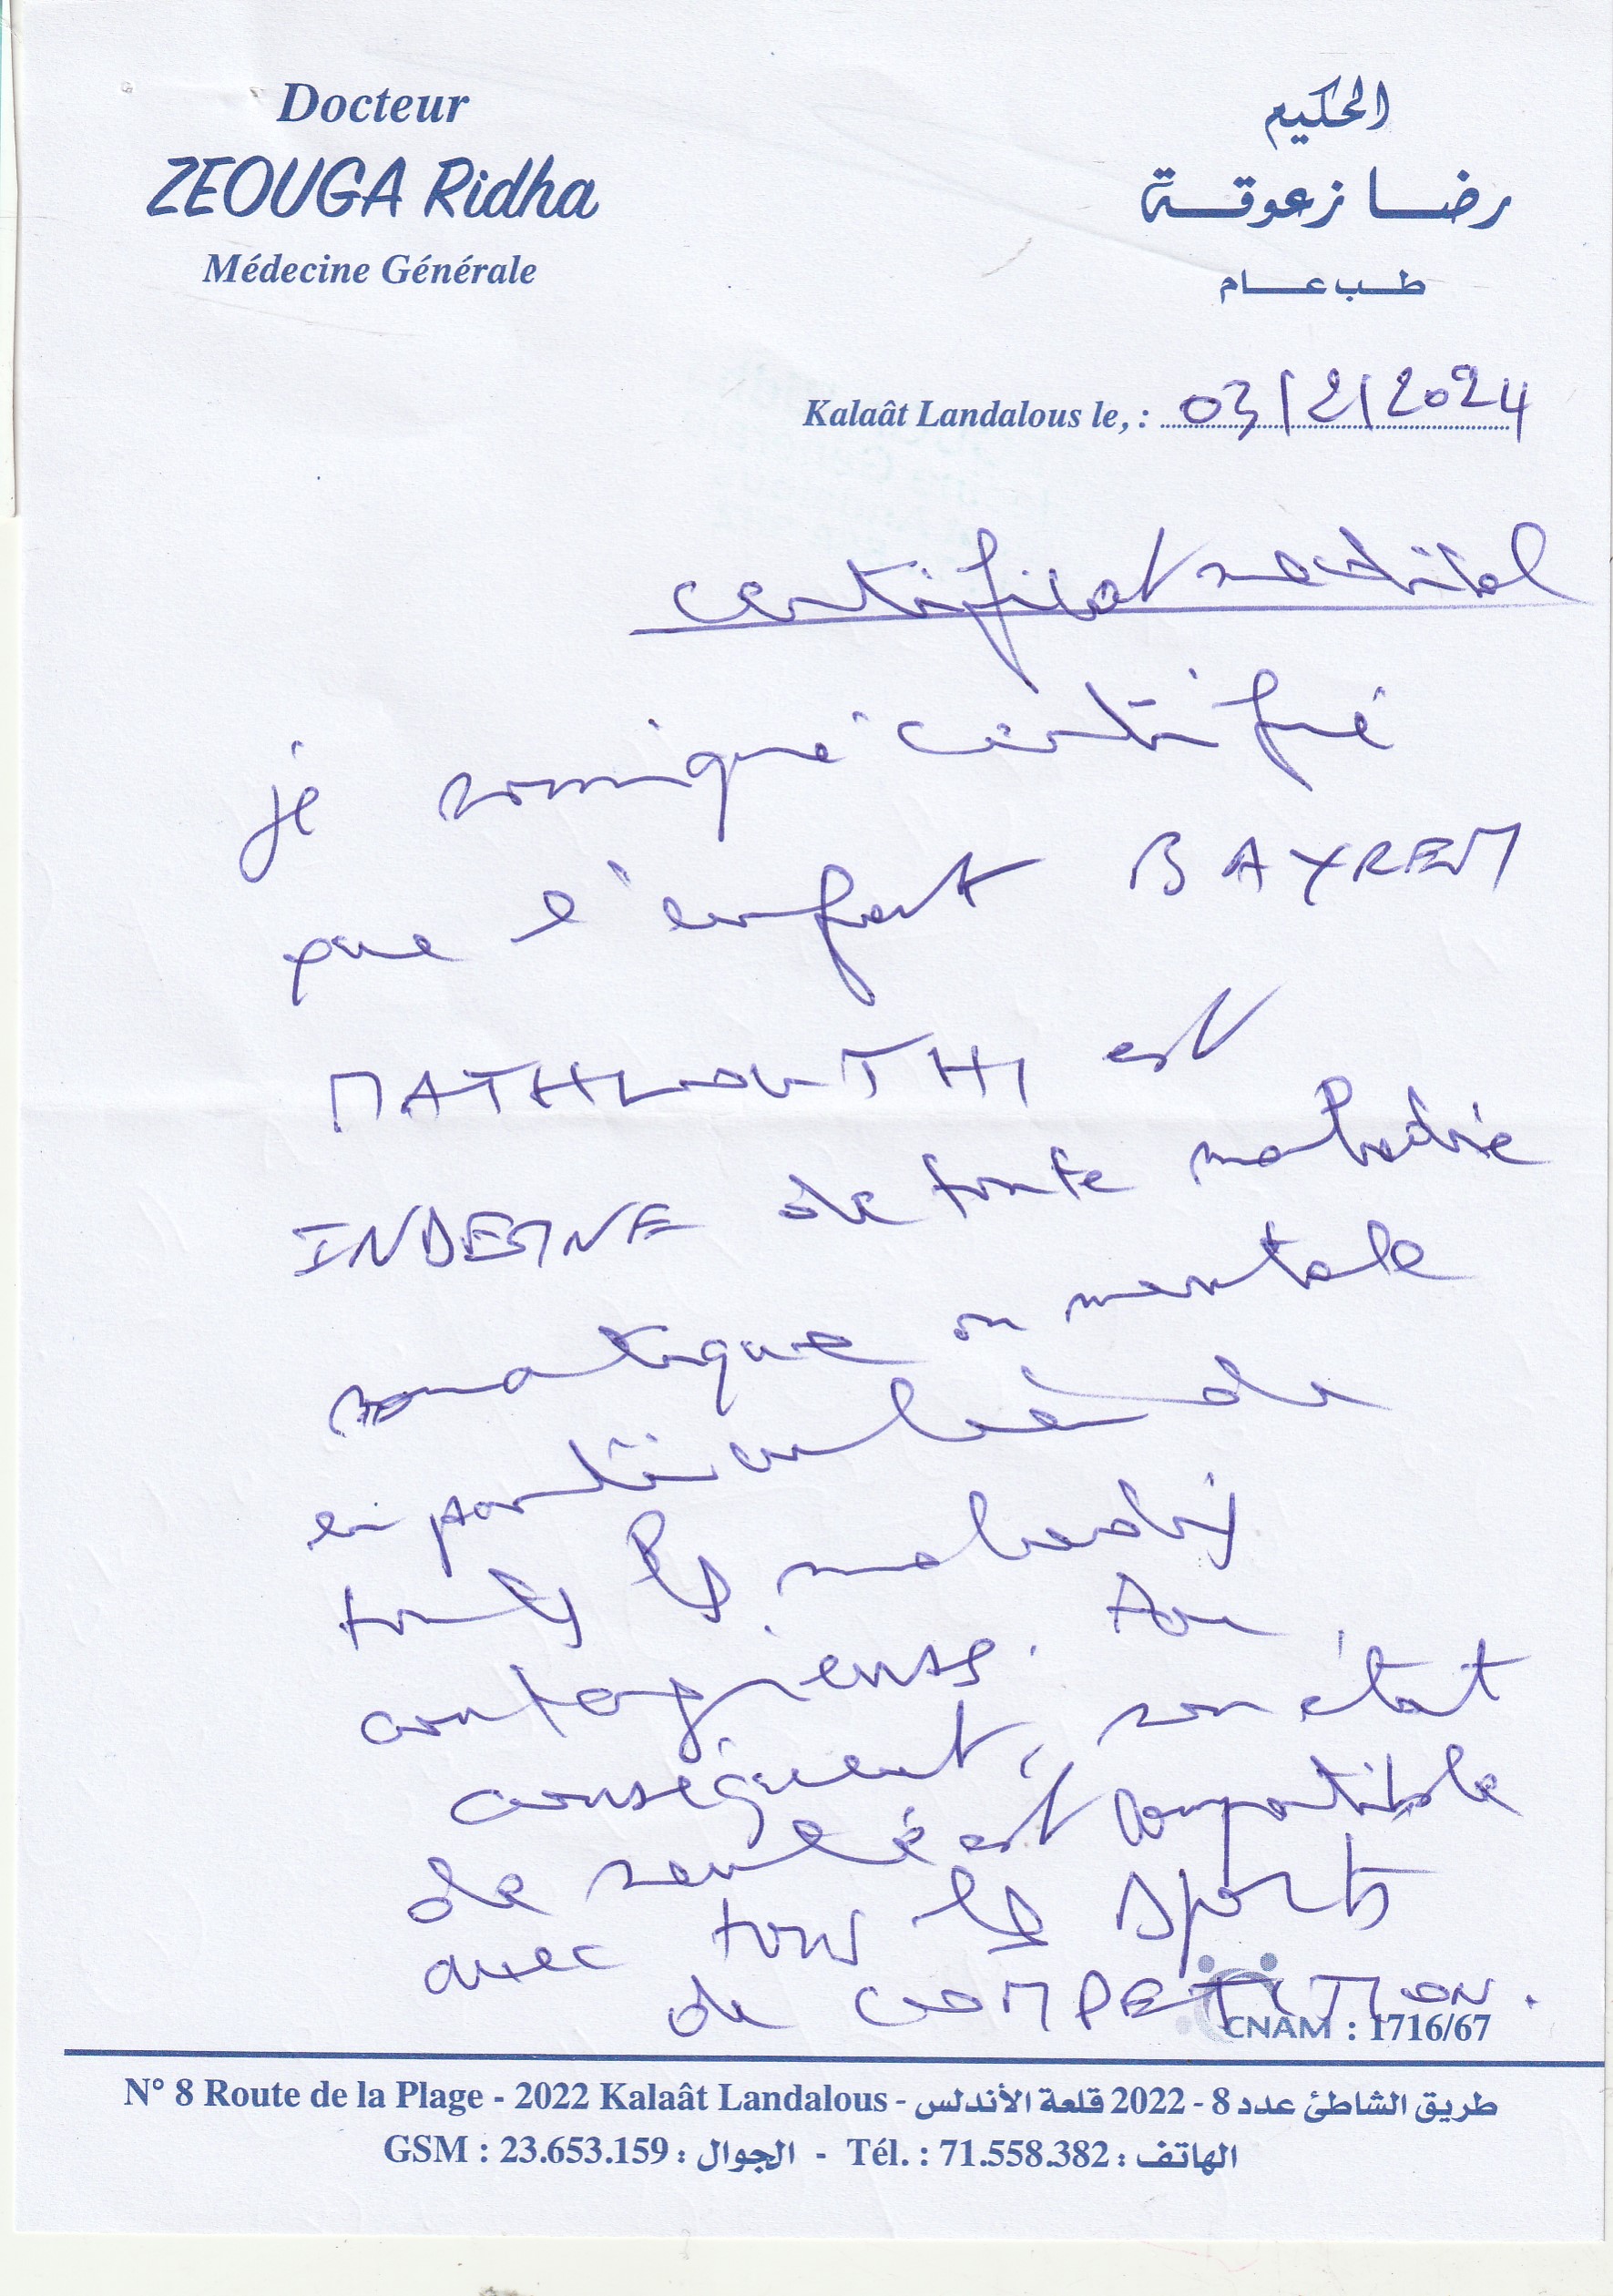 Docteur
ZEOUGA Ridha
Médecine Générale
الحكيم
رضا زعوقة
طب عام
Kalaât Landalous le, : 03/2/2024
certificat médical
je soussigné certifie
que l'enfant BAYREM
MATHLOUTHI est
INDEMNE de toute maladie
somatique ou mentale
en particulier de
toutes les maladies
contagieuses. Par
conséquent, son état
de santé est compatible
avec tous les sports
de COMPETITION.
CNAM : 1716/67
N° 8 Route de la Plage - 2022 Kalaât Landalous - طريق الشاطئ عدد 8 - 2022 قلعة الأندلس
GSM : 23.653.159 : الجوال - Tél. : 71.558.382 : الهاتف